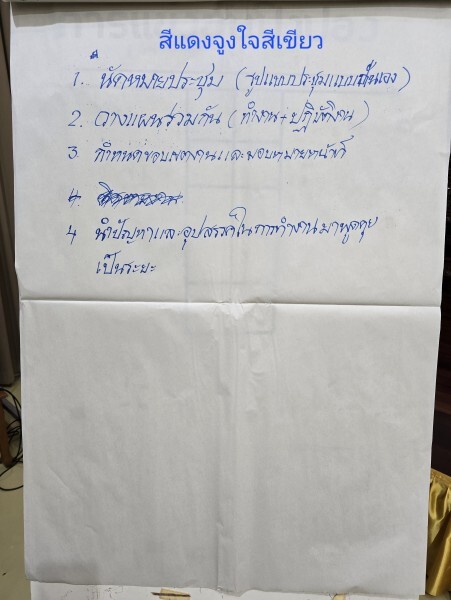 สีแดงจูงใจสีเขียว
1. นัดหมายประชุม (รูปแบบประชุมแบบกันเอง)
2. วางแผนร่วมกัน (ทำงาน+ปฏิบัติงาน)
3. กำหนดขอบเขตงานและมอบหมายหน้าที่
4.
4 นำปัญหาและอุปสรรคในการทำงานมาพูดคุย
เป็นระยะ